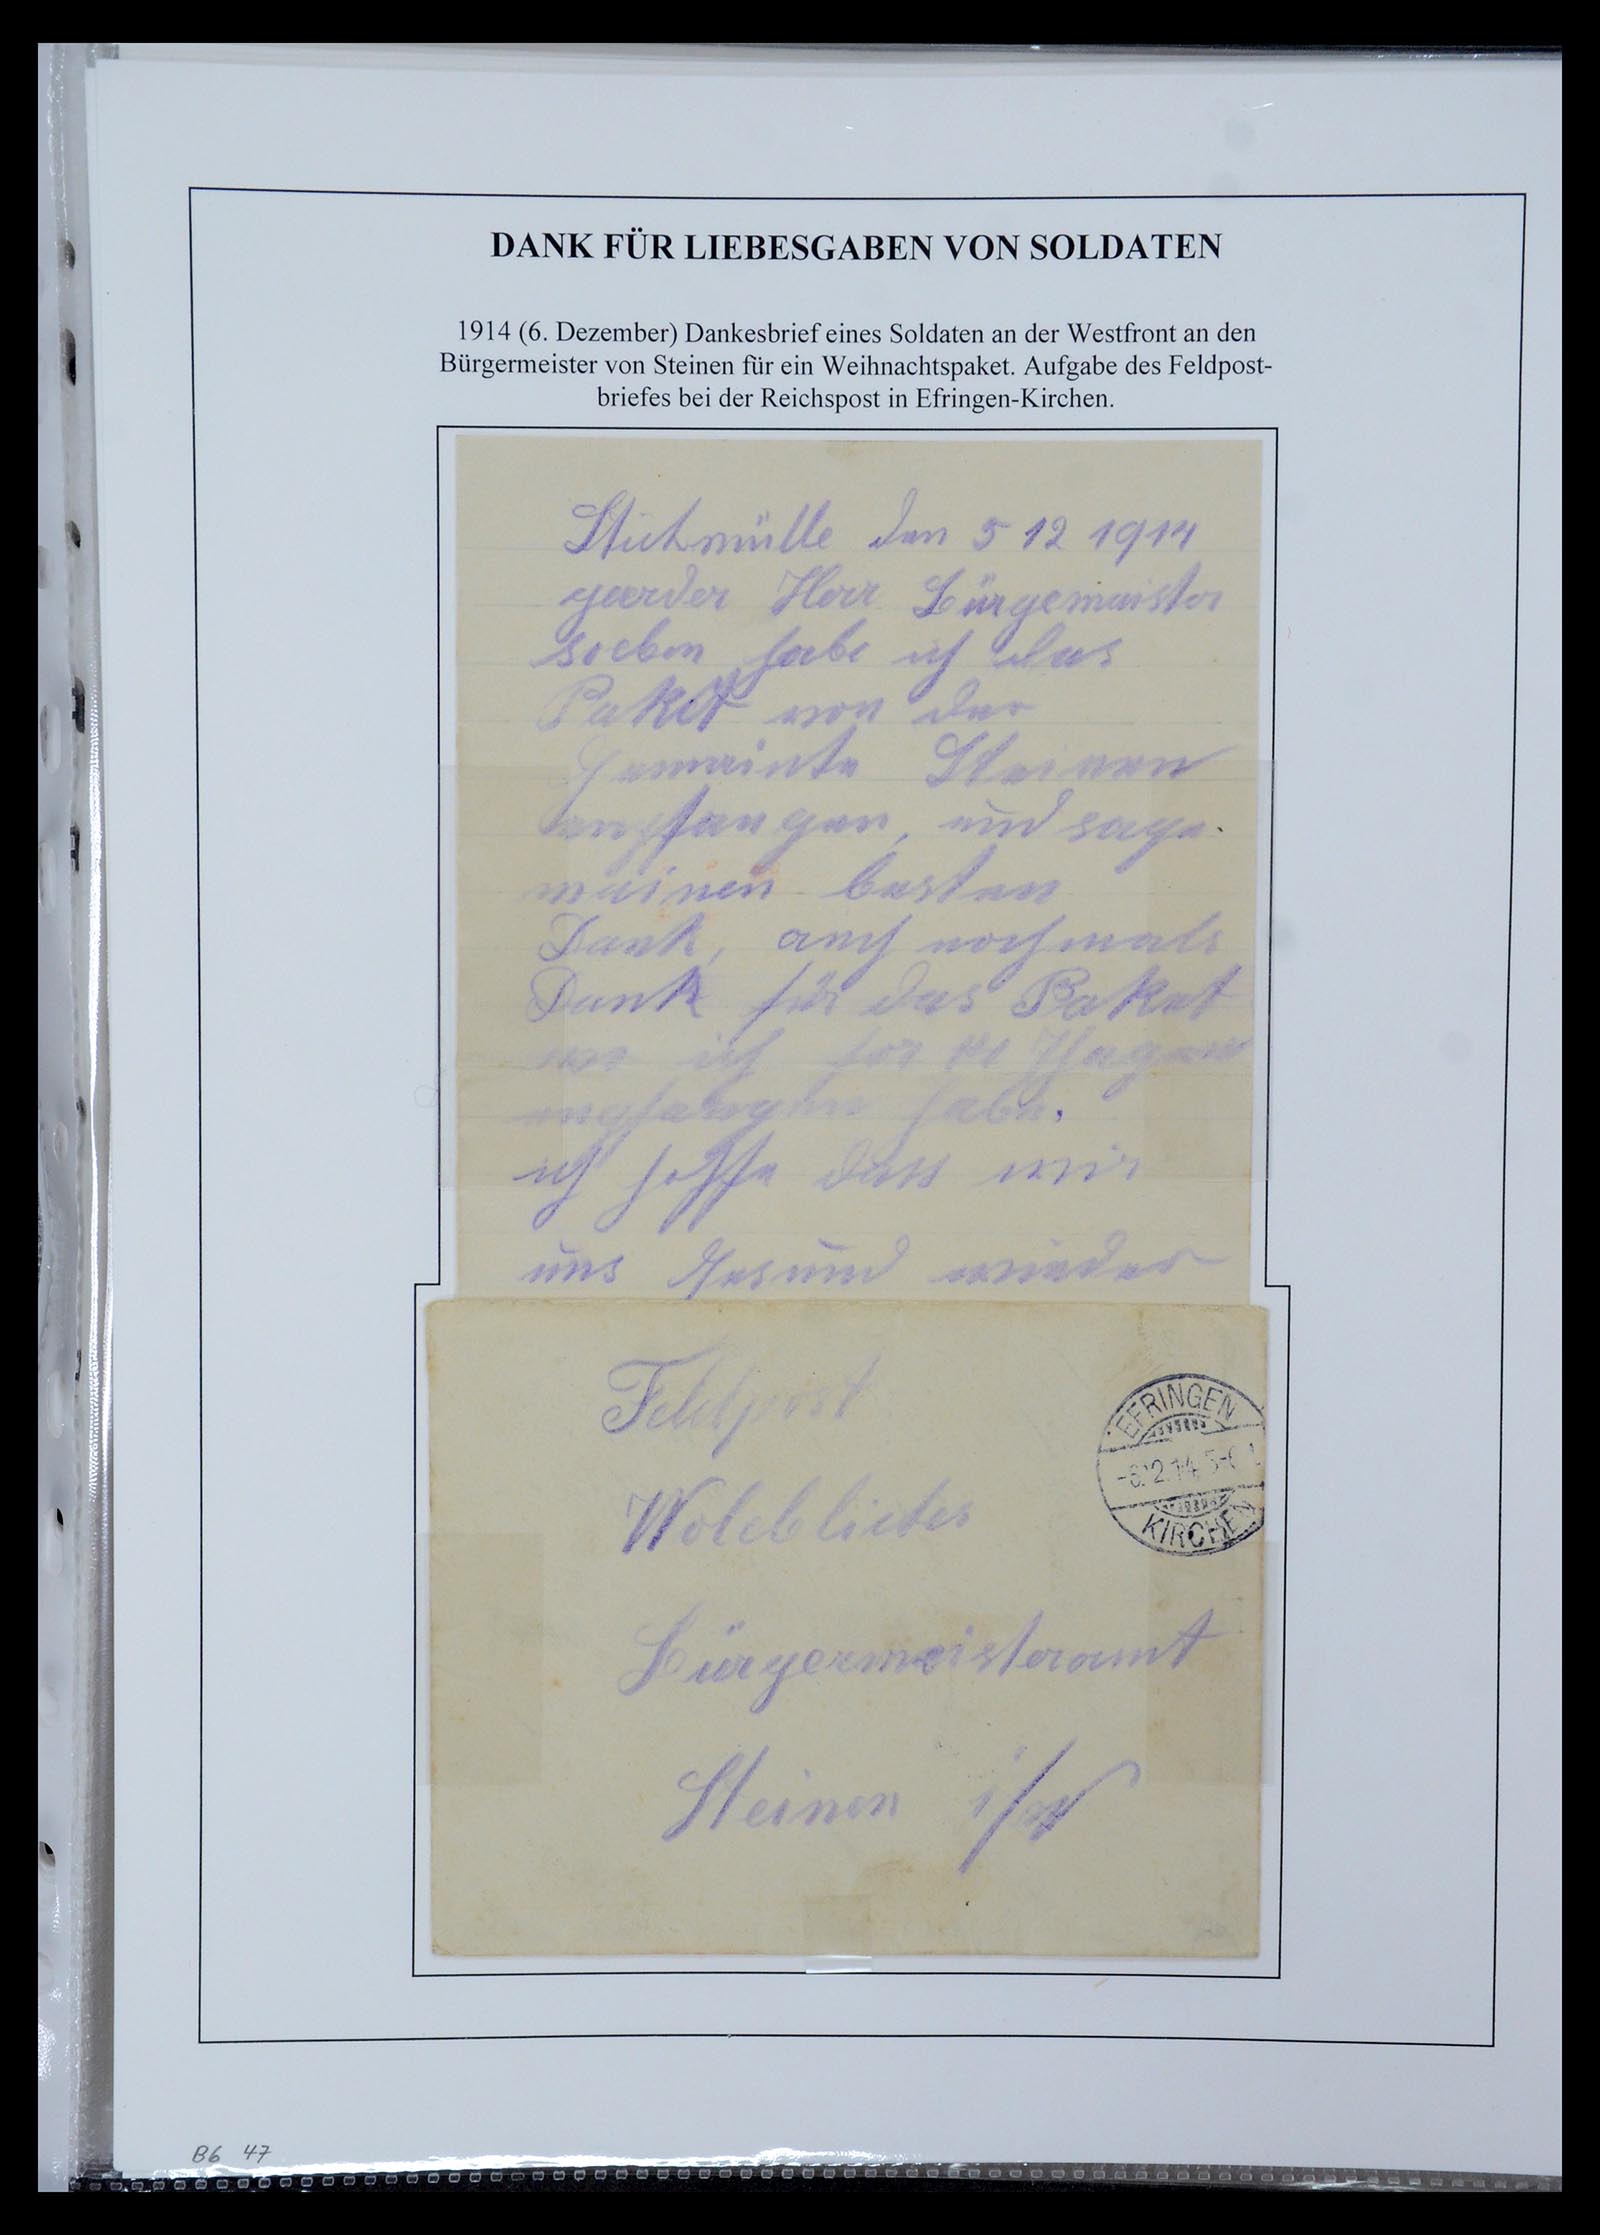 DANK FÜR LIEBESGABEN VON SOLDATEN
1914 (6. Dezember) Dankesbrief eines Soldaten an der Westfront an den
Bürgermeister von Steinen für ein Weihnachtspaket. Aufgabe des Feldpost-
briefes bei der Reichspost in Efringen-Kirchen.
den 5 12 1914
geerder Herr Bürgemeister
soeben habe ich das
Paket von der
Gemeinte Steinen
empfangen, und sage
meinen besten
Dank, auch nochmals
Dank für das Paket
ich for 14 Thagen
empfangen habe.
ich hoffe dass wir
uns Gesund wieder
Feldpost
EFRINGEN
-6.12.14.5-6
KIRCHEN
Wolebliches
Bürgermeisteramt
Steinen i/W
B6 47